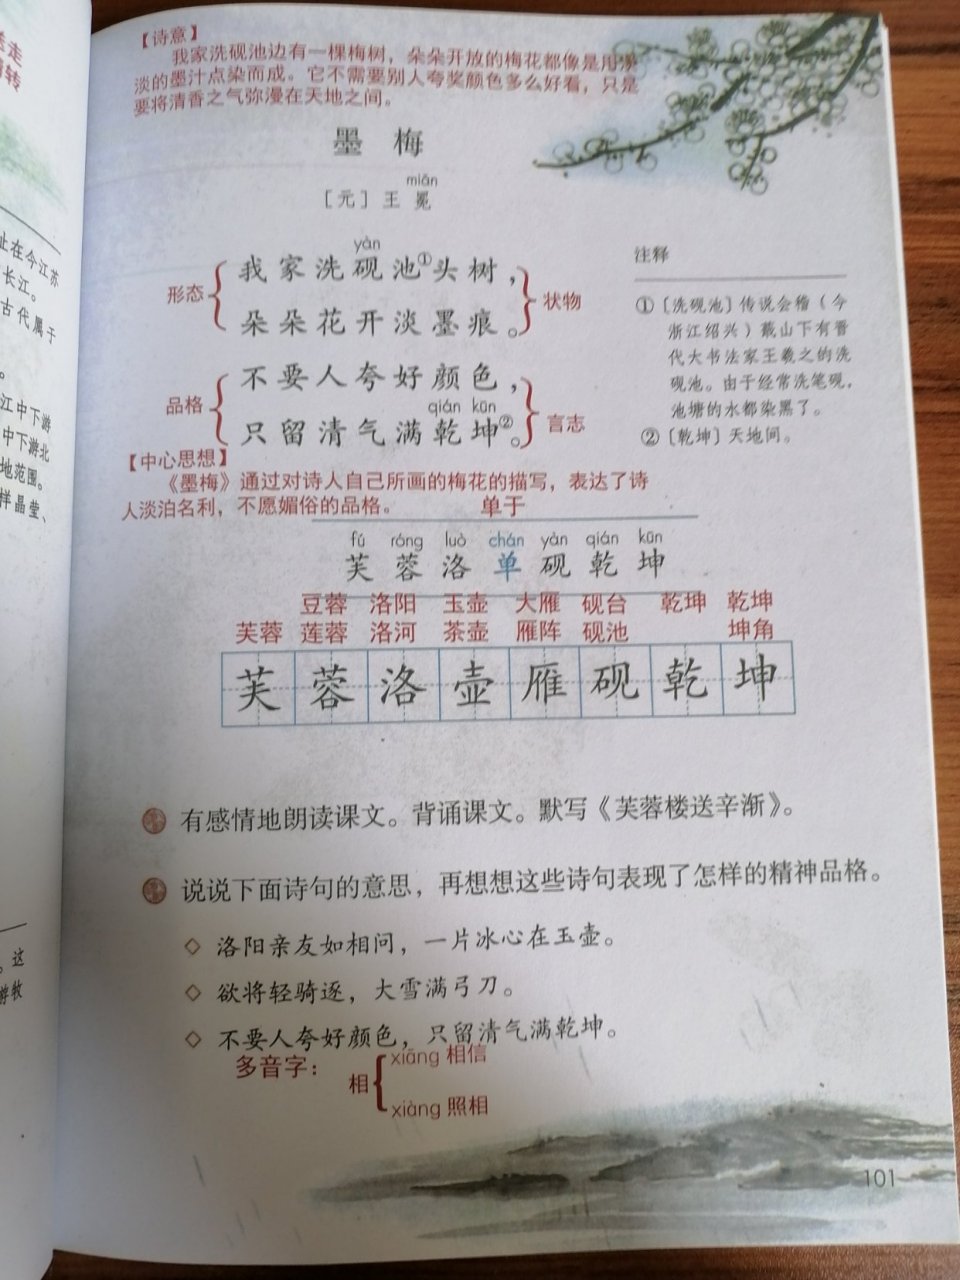 走
转
【诗意】
我家洗砚池边有一棵梅树，朵朵开放的梅花都像是用淡
淡的墨汁点染而成。它不需要别人夸奖颜色多么好看，只是
要将清香之气弥漫在天地之间。
墨 梅
miǎn
［元］王 冕
yàn
我家洗砚池①头树，
形态
状物
朵朵花开淡墨痕。
不要人夸好颜色，
品格
qián kūn
言志
只留清气满乾坤②。
注释
①［洗砚池］传说会稽（今
浙江绍兴）蕺山下有晋
代大书法家王羲之的洗
砚池。由于经常洗笔砚，
池塘的水都染黑了。
②［乾坤］天地间。
【中心思想】
《墨梅》通过对诗人自己所画的梅花的描写，表达了诗
人淡泊名利，不愿媚俗的品格。
单于
fú róng luò chán yàn qián kūn
芙 蓉 洛 单 砚 乾 坤
豆蓉 洛阳 玉壶 大雁 砚台 乾坤 乾坤
芙蓉 莲蓉 洛河 茶壶 雁阵 砚池 坤角
芙 蓉 洛 壶 雁 砚 乾 坤
有感情地朗读课文。背诵课文。默写《芙蓉楼送辛渐》。
说说下面诗句的意思，再想想这些诗句表现了怎样的精神品格。
◇ 洛阳亲友如相问，一片冰心在玉壶。
◇ 欲将轻骑逐，大雪满弓刀。
◇ 不要人夸好颜色，只留清气满乾坤。
多音字：
相
xiāng 相信
xiàng 照相
101
址在今江苏
长江。
古代属于
。
江中下游
中下游北
地范围。
样晶莹、
。这